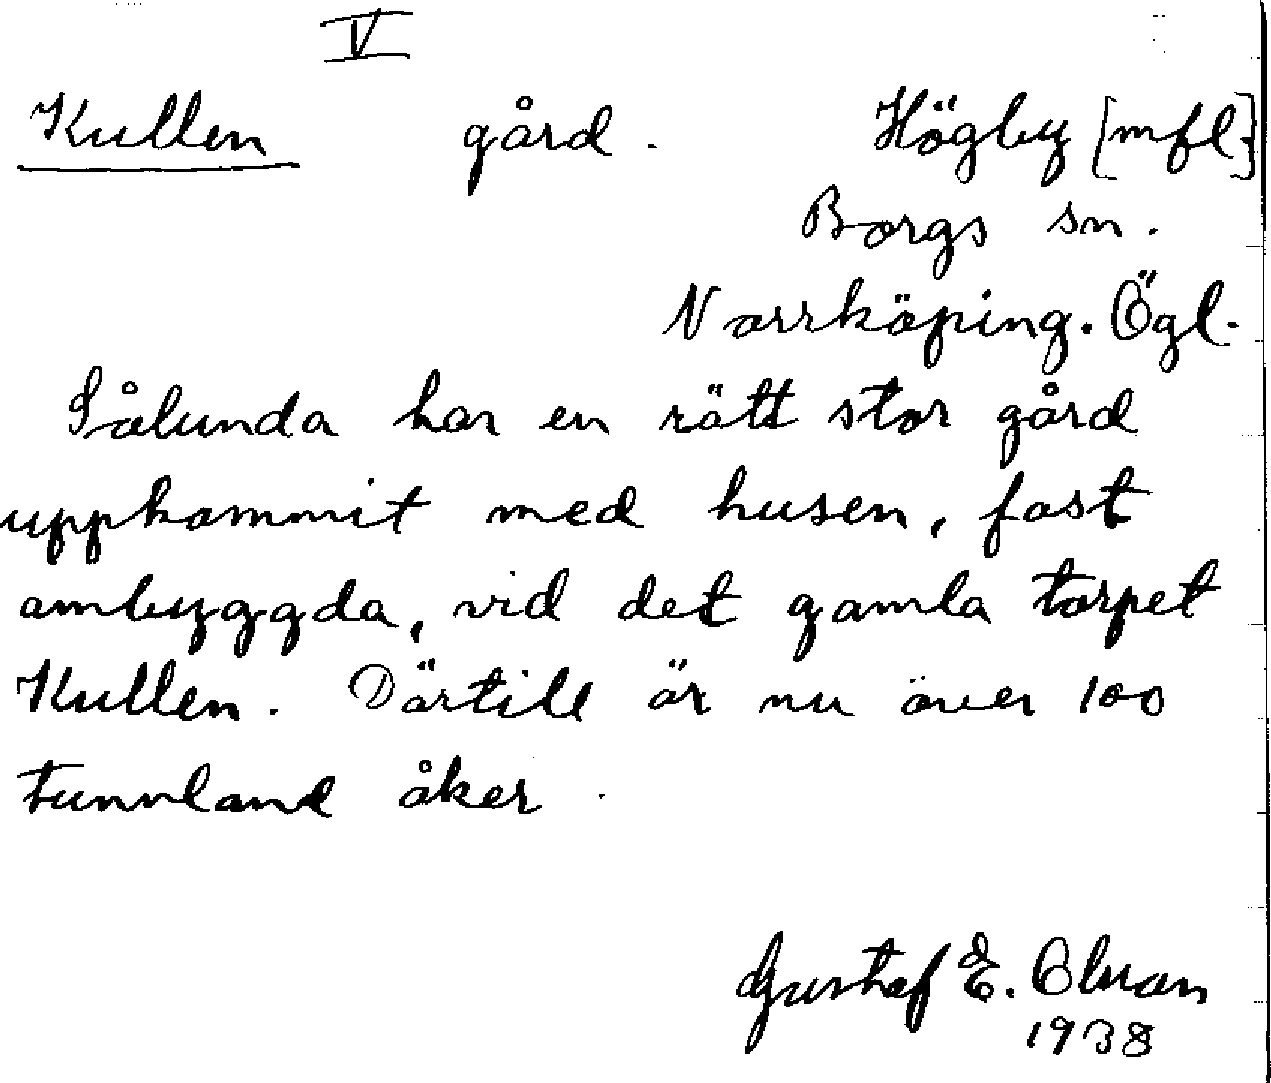 V
Kullen gård. Högby [mfl]
Borgs sn.
Norrköping. Ögl.
Sålunda har en rätt stor gård
uppkommit med husen, fast
ombyggda, vid det gamla torpet
Kullen. Därtill är nu över 100
tunnland åker.
Gustaf E. Olsson
1938